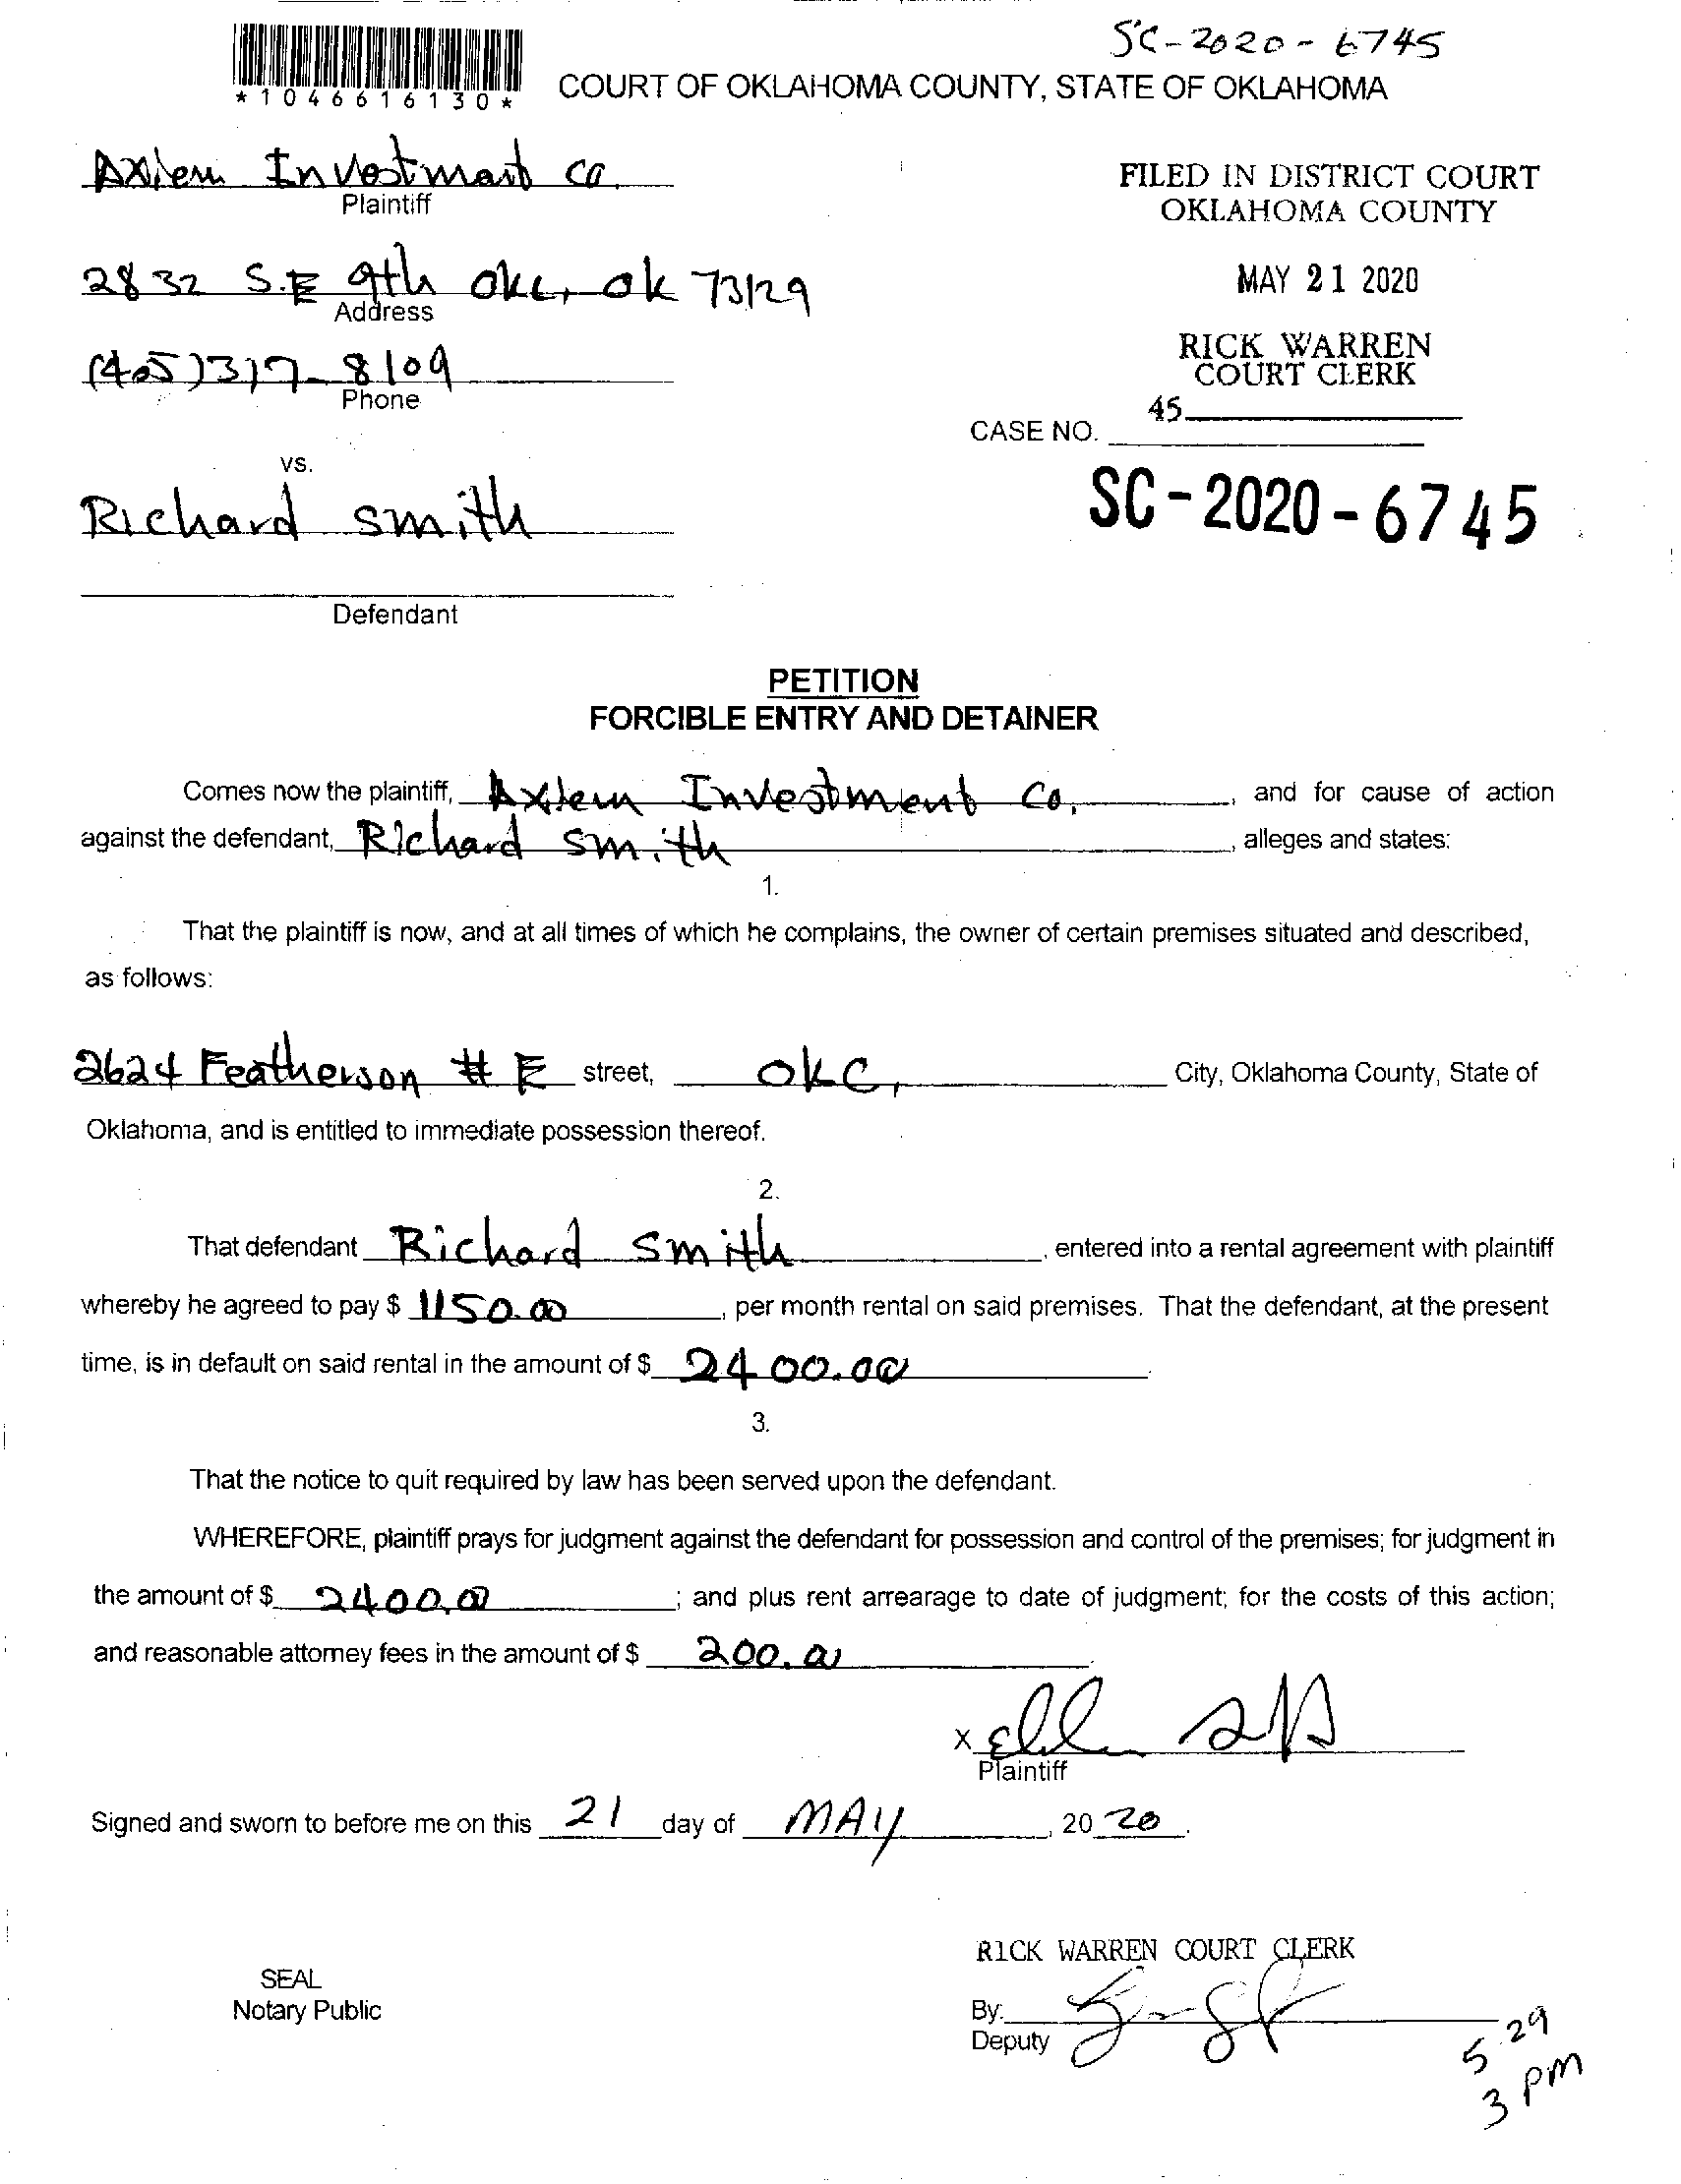 SC-2020-6745
*1046616130*
COURT OF OKLAHOMA COUNTY, STATE OF OKLAHOMA
Investment Co.
Plaintiff
FILED IN DISTRICT COURT
OKLAHOMA COUNTY
2832 S.E 9th OKC, OK 73129
Address
MAY 21 2020
RICK WARREN
COURT CLERK
(405)317-8109
Phone
45
CASE NO.
vs.
Richard Smith
SC-2020-6745
Defendant
PETITION
FORCIBLE ENTRY AND DETAINER
Comes now the plaintiff, Investment Co. , and for cause of action
against the defendant, Richard Smith , alleges and states:
1.
That the plaintiff is now, and at all times of which he complains, the owner of certain premises situated and described,
as follows:
2624 Featherson # E street, OKC, City, Oklahoma County, State of
Oklahoma, and is entitled to immediate possession thereof.
2.
That defendant Richard Smith , entered into a rental agreement with plaintiff
whereby he agreed to pay $ 1150.00 , per month rental on said premises. That the defendant, at the present
time, is in default on said rental in the amount of $ 2400.00 .
3.
That the notice to quit required by law has been served upon the defendant.
WHEREFORE, plaintiff prays for judgment against the defendant for possession and control of the premises; for judgment in
the amount of $ 2400.00 ; and plus rent arrearage to date of judgment; for the costs of this action;
and reasonable attorney fees in the amount of $ 200.00 .
X
Plaintiff
Signed and sworn to before me on this 21 day of MAY , 20 20 .
RICK WARREN COURT CLERK
SEAL
Notary Public
By:
Deputy
5-29
3 pm